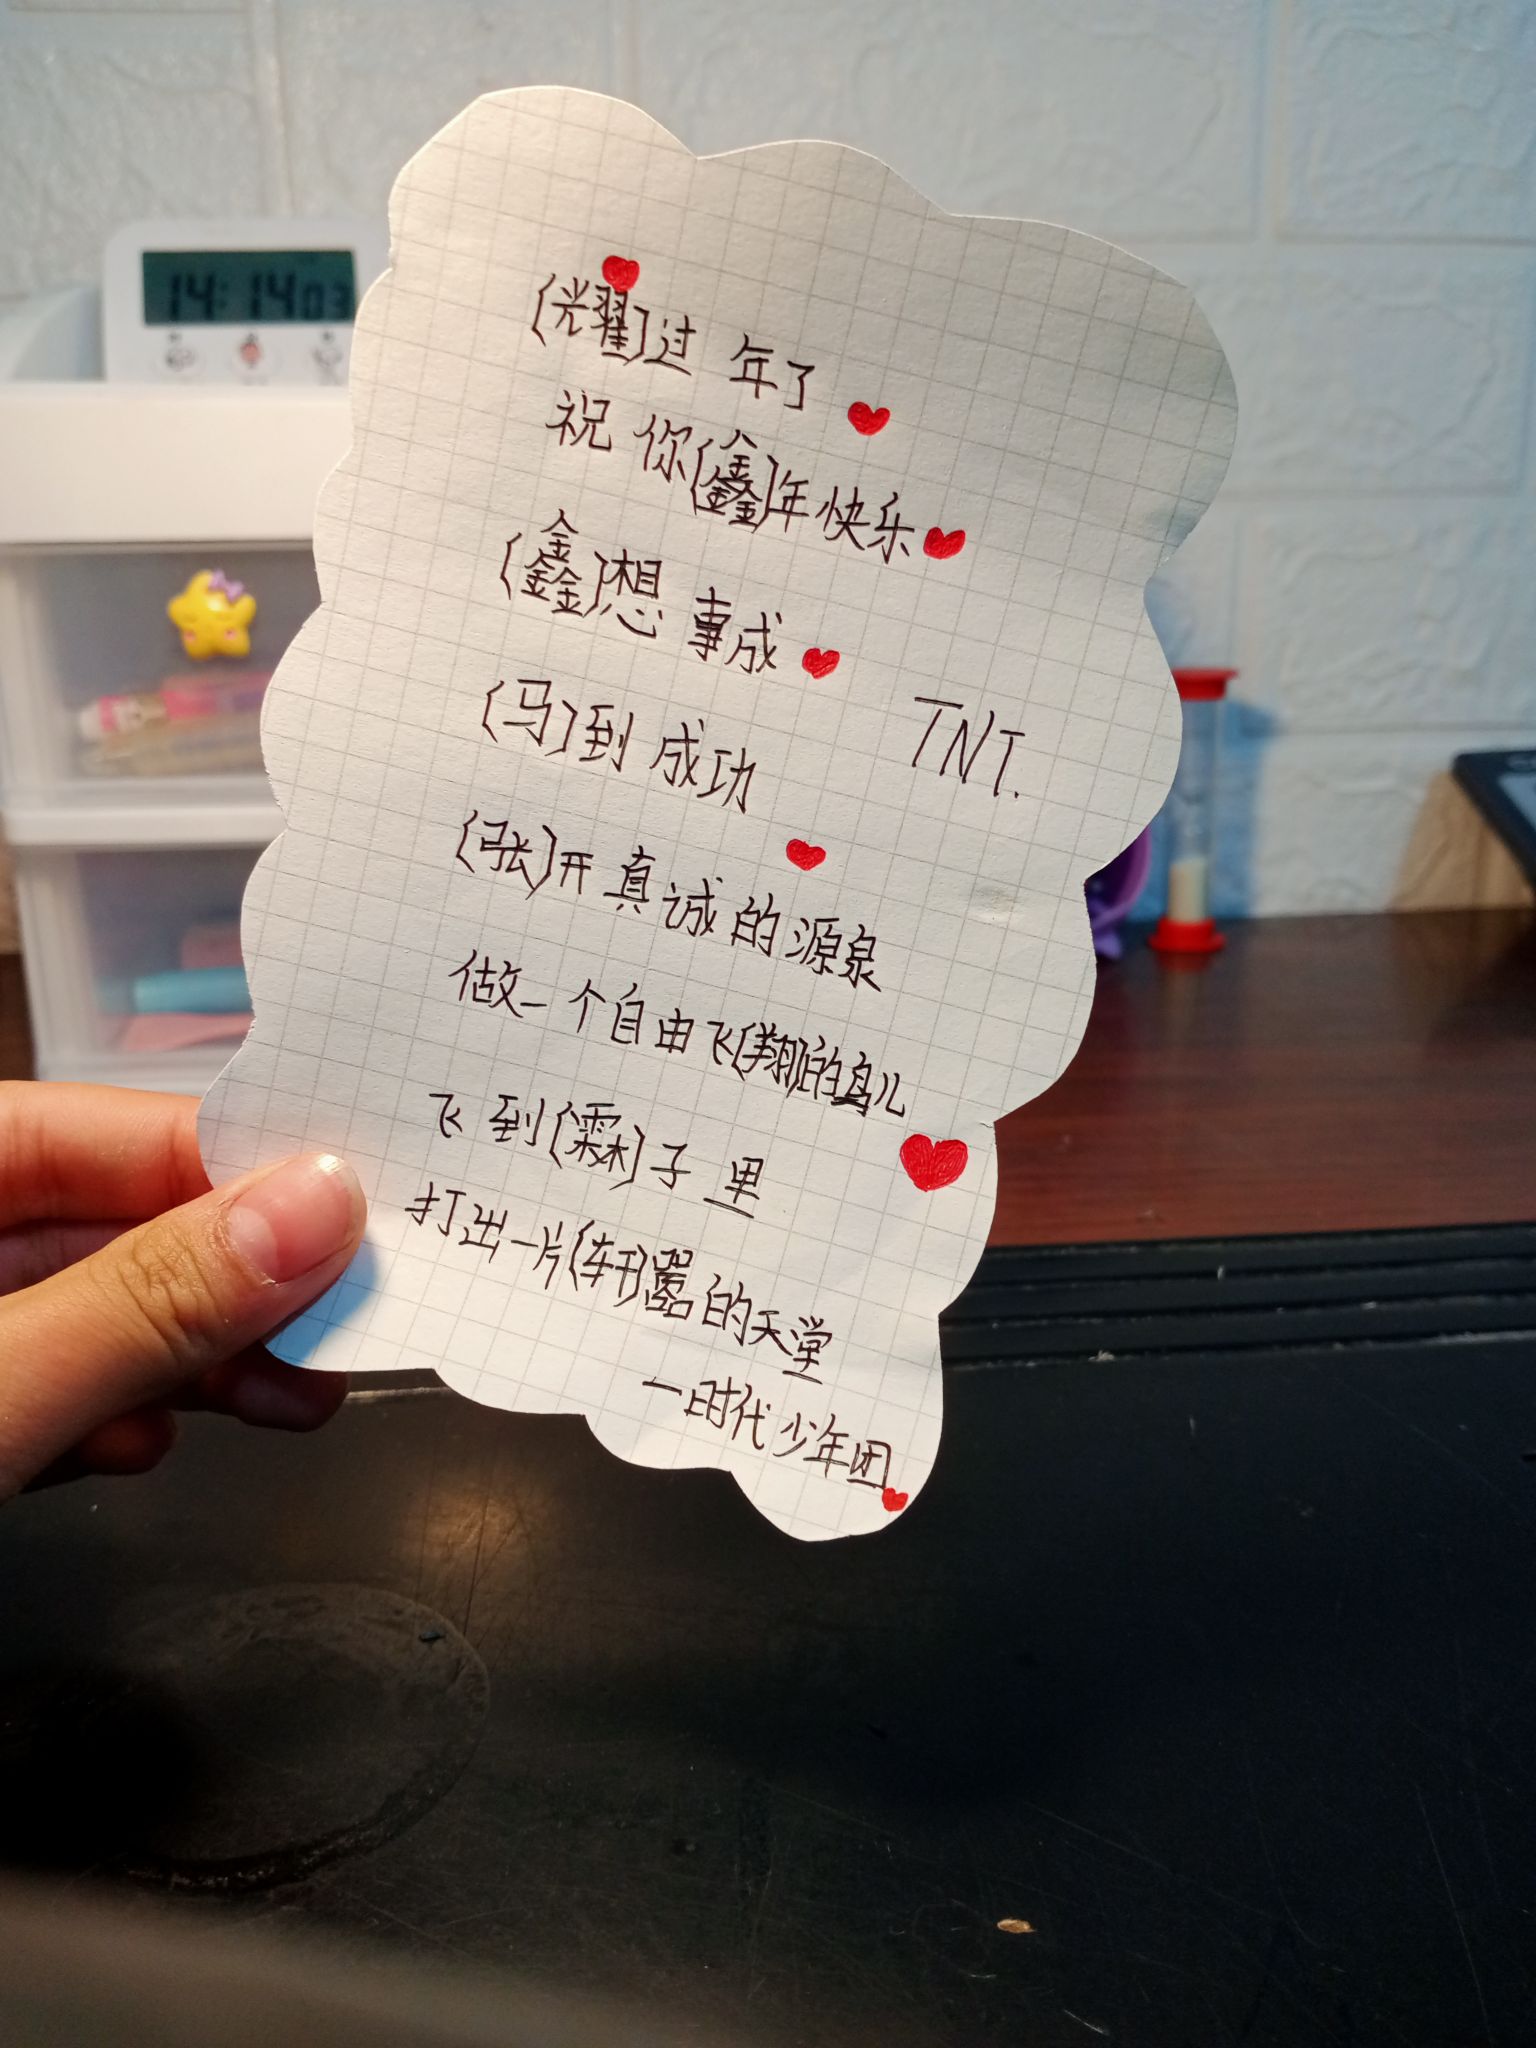 14:14 03
(耀)过年了
祝你(鑫)年快乐
(鑫)想事成
(马)到成功
TNT.
(张)开真诚的源泉
做一个自由飞(翔)的鸟儿
飞到(霖)子里
打出一片(轩)嚣的天堂
一时代少年团